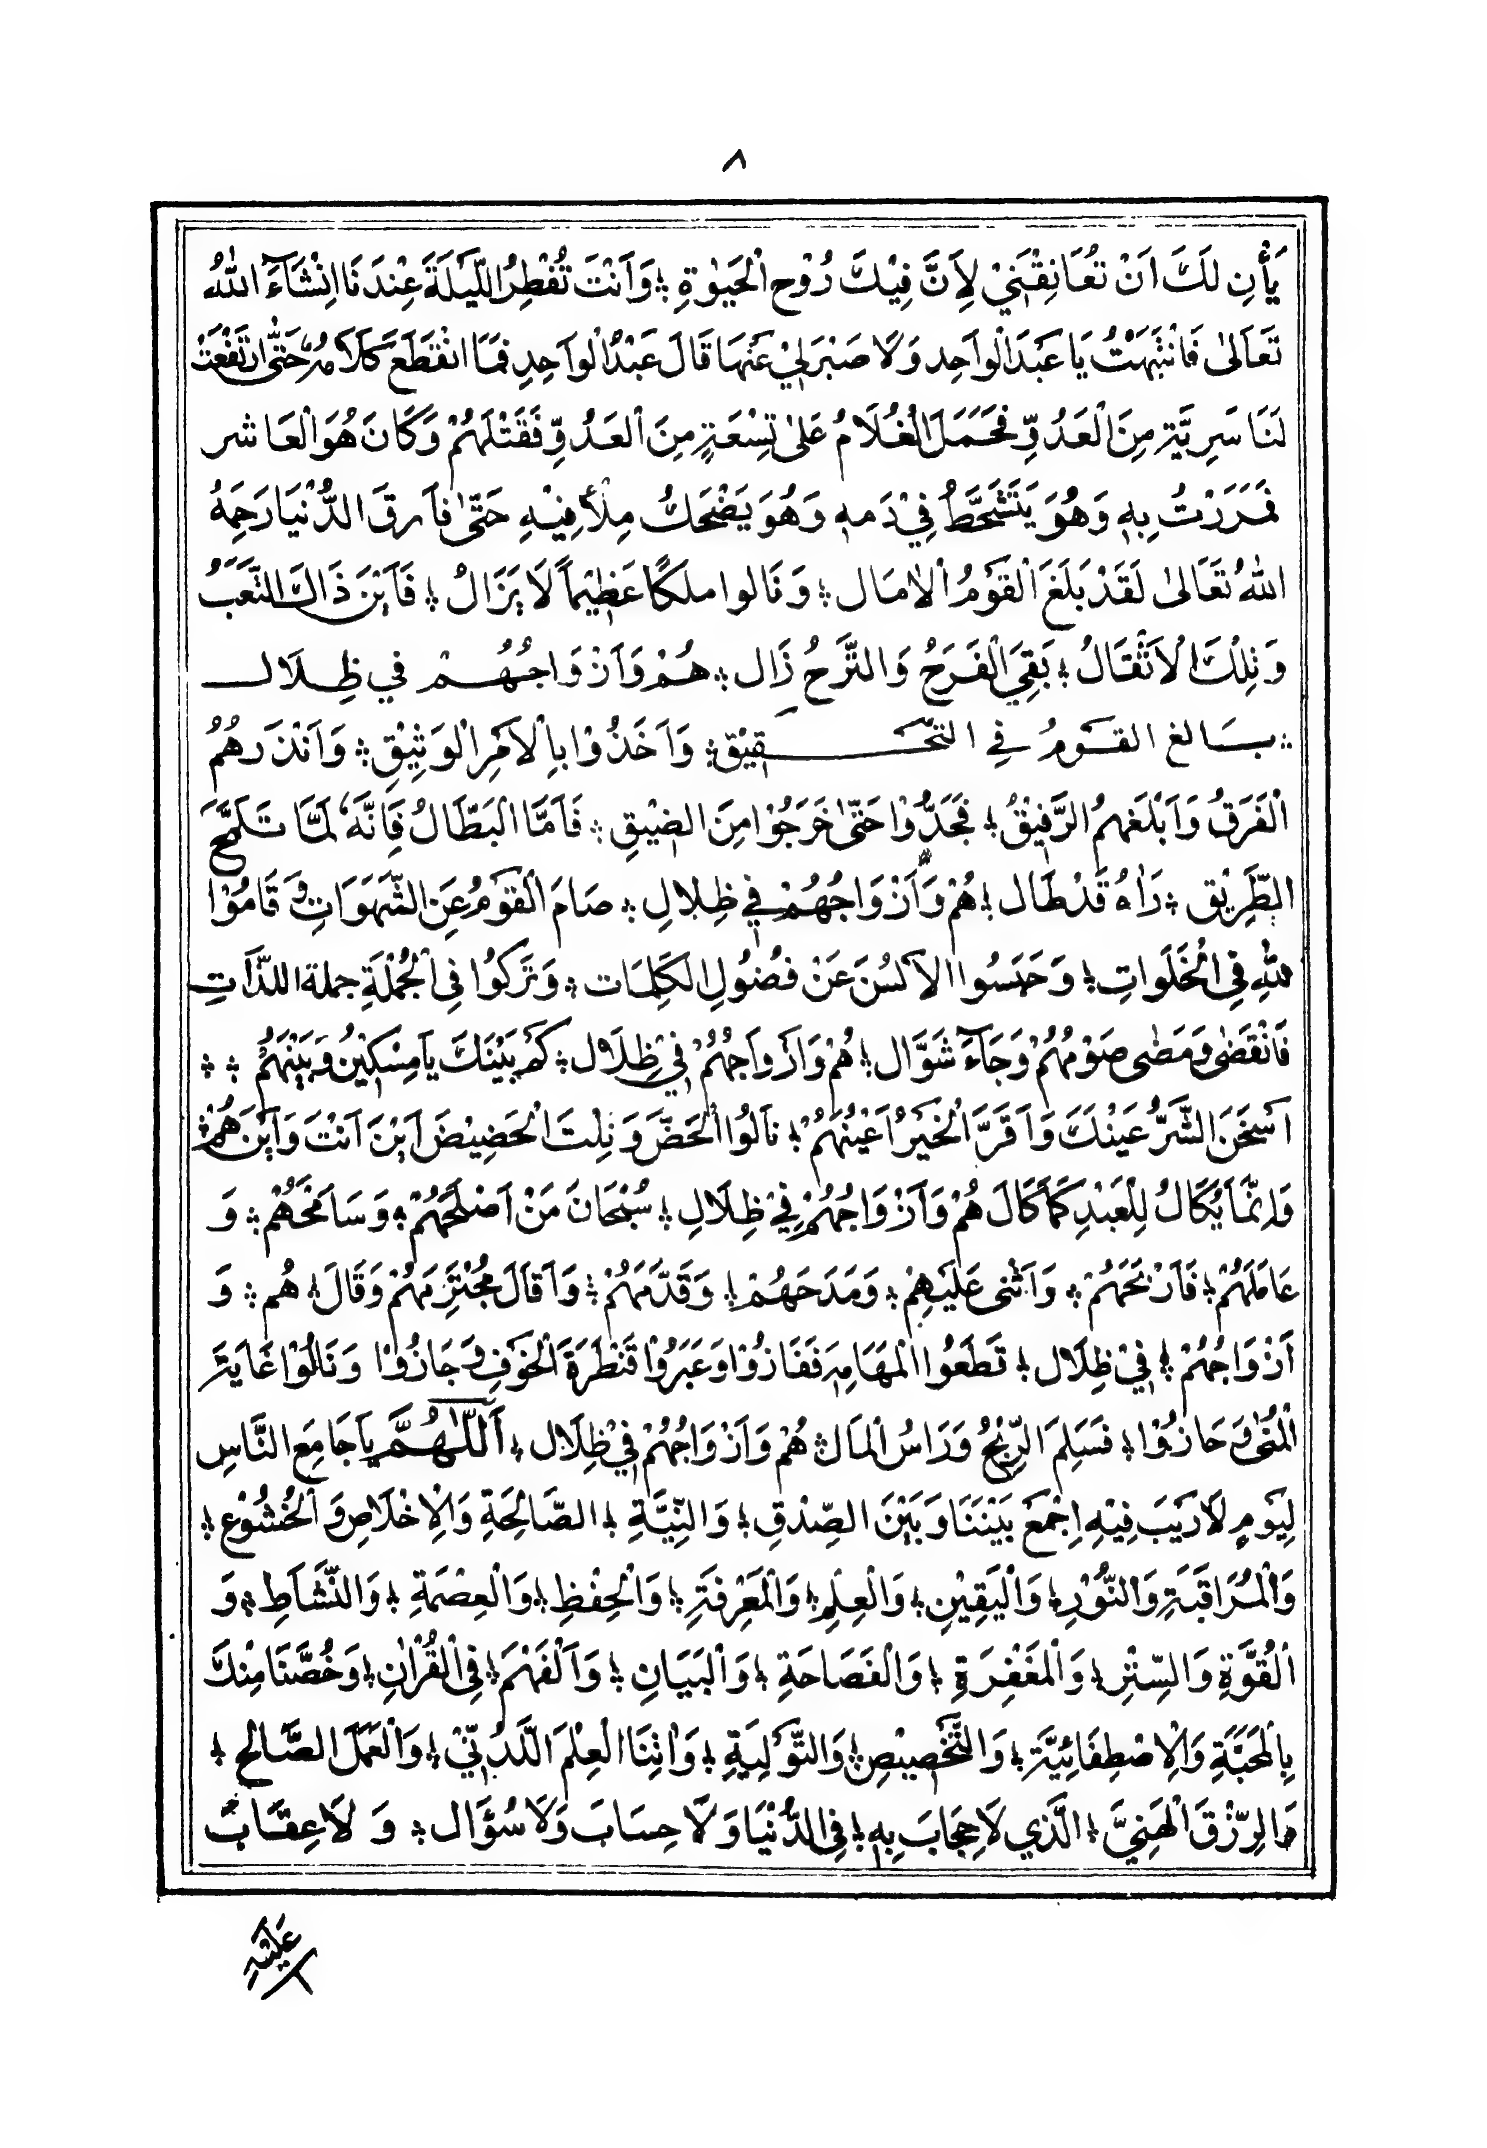 ٨
يَأْنِ لَكَ اَنْ تُعَانِقَنِيْ لِاَنَّ فِيْكَ رُوْحَ الْحَيٰوةِ ؞ وَاَنْتَ تُفْطِرُ اللَّيْلَةَ عِنْدَنَا اِنْشَآءَ اللهُ
تَعَالىٰ فَانْتَبَهْتُ يَا عَبْدَ الْوَاحِدِ وَلَا صَبْرَ لِيْ عَنْهَا قَالَ عَبْدُ الْوَاحِدِ فَمَا انْقَطَعَ كَلَامُهُ حَتّٰى ارْتَفَعَتْ
لَنَا سَرِيَّةٌ مِنَ الْعَدُوِّ فَحَمَلَ الْغُلَامُ عَلىٰ تِسْعَةٍ مِنَ الْعَدُوِّ فَقَتَلَهُمْ وَكَانَ هُوَ الْعَاشر
فَمَرَرْتُ بِهٖ وَهُوَ يَتَشَحَّطُ فِيْ دَمه وَهُوَ يَضْحَكُ مِلْأَ فِيْهِ حَتّٰى فَارقَ الدُّنْيَا رَحِمَهُ
اللهُ تَعَالىٰ لَقَدْ بَلَغَ الْقَوْمُ الْاٰمَال ؞ وَنَالوا ملكًا عَظِيْمًا لَا يَزَالُ ؞ فَاَيْنَ ذَاكَ التَّعَبُ
وَتِلْكَ الْاَثْقَالُ ؞ بَقِيَ الْفَرَحُ وَالتَّرَحُ زَال ؞ هُمْ وَاَزْوَاجُهُمْ في ظِلَال
؞ بَالغ القَوْمُ فِي التَّحْقِيْق ؞ وَاَخَذُوْا بِالْاَمْرِ الْوَثِيْقِ ؞ وَاَنْذَرَهُمُ
الْفَرَقُ وَاَبْلَغَهُمُ الرَّفِيْقُ ؞ فَجَدُّوْا حَتّٰى خَرَجُوْا مِنَ الضِيْقِ ؞ فَاَمَّا الْبَطَّالُ فَاِنَّهٗ لَمَّا تَلَمَّحَ
الطَّرِيْق ؞ رَاٰهُ قَدْ طَال ؞ هُمْ وَاَزْوَاجُهُمْ فِيْ ظِلَالٍ ؞ صَامَ الْقَوْمُ عَنِ الشَّهَوَاتِ وَقَامُوْا
لِلّٰهِ فِي الْخَلَوَاتِ ؞ وَحَبَسُوا الْاَلْسُنَ عَنْ فُضُوْلِ الْكَلِمَات ؞ وَتَرَكُوْا فِي الْجُمْلَةِ جملة اللذَّاتِ
فَانْقَضٰى وَمَضٰى صَوْمُهُمْ وَجَآءَ شَوَّال ؞ هُمْ وَاَزْوَاجُهُمْ فِيْ ظِلَال ؞ كَمْ بَيْنَكَ يَا مِسْكِيْنُ وَبَيْنَهُمْ ؞ ؞
اَسْخَنَ الشَّرُّ عَيْنَكَ وَاَقَرَّ الْخَيْرُ اَعْيُنَهُمْ ؞ نَالُوْا الْحَضَّ وَنِلْتَ الْحَضِيْضَ اَيْنَ اَنْتَ وَاَيْنَ هُمْ ؞
وَاِنَّمَا يُكَالُ لِلْعَبْدِ كَمَا كَالَ هُمْ وَاَزْوَاجُهُمْ فِيْ ظِلَالِ ؞ سُبْحَانَ مَنْ اَصْلَحَهُمْ ؞ وَسَامَحَهُمْ ؞ وَ
عَامَلَهُمْ ؞ فَاَرْبَحَهُمْ ؞ وَاَثْنٰى عَلَيْهِمْ ؞ وَمَدَحَهُمْ ؞ وَقَدَّمَهُمْ ؞ وَاَقَالَ مُجْتَرِمَهُمْ وَقَالَ ؞ هُم ؞ وَ
اَزْوَاجُهُمْ ؞ فِيْ ظِلَال ؞ قَطَعُوا الْمَهَامِهَ فَفَازُوْا وَعَبَرُوْا قَنْطَرَةَ الْخَوْفِ وَجَازُوْا وَنَالُوْا غَايَةَ
الْمُنٰى وَحَازُوْا ؞ فَسَلِمَ الرِّبْحُ وَرَاسُ الْمَال ؞ هُمْ وَاَزْوَاجُهُمْ فِيْ ظِلَال ؞ اَللّٰهُمَّ يَا جَامِعَ النَّاسِ
لِيَوْمٍ لَا رَيْبَ فِيْهِ اِجْمَعْ بَيْنَنَا وَبَيْنَ الصِّدْقِ ؞ وَالنِّيَّةِ ؞ الصَّالِحَةِ وَالْاِخْلَاصِ وَالْخُشُوْعِ ؞
وَالْمُرَاقَبَةِ وَالنُّوْرِ ؞ وَالْيَقِيْنِ ؞ وَالْعِلْمِ ؞ وَالْمَعْرِفَةِ ؞ وَالْحِفْظِ ؞ وَالْعِصْمَةِ ؞ وَالنَّشَاطِ ؞ وَ
الْقُوَّةِ وَالسِّتْرِ ؞ وَالْمَغْفِرَةِ ؞ وَالْفَصَاحَةِ ؞ وَالْبَيَانِ ؞ وَالْفَهْمَ ؞ فِي الْقُرْاٰنِ ؞ وَخُصَّنَا مِنْكَ
بِالْمَحَبَّةِ وَالْاِصْطِفَائِيَّةِ ؞ وَالتَّخْصِيْصِ ؞ وَالتَّوْلِيَةِ ؞ وَاٰتِنَا الْعِلْمَ اللَّدُنِّيّ ؞ وَالْعَمَلَ الصَّالِحَ ؞
وَالرِّزْقَ الْهَنِيَّ ؞ الَّذِي لَا حِجَابَ بِهٖ ؞ فِي الدُّنْيَا وَلَا حِسَابَ وَلَا سُؤَال ؞ وَ لَا عِقَابَ